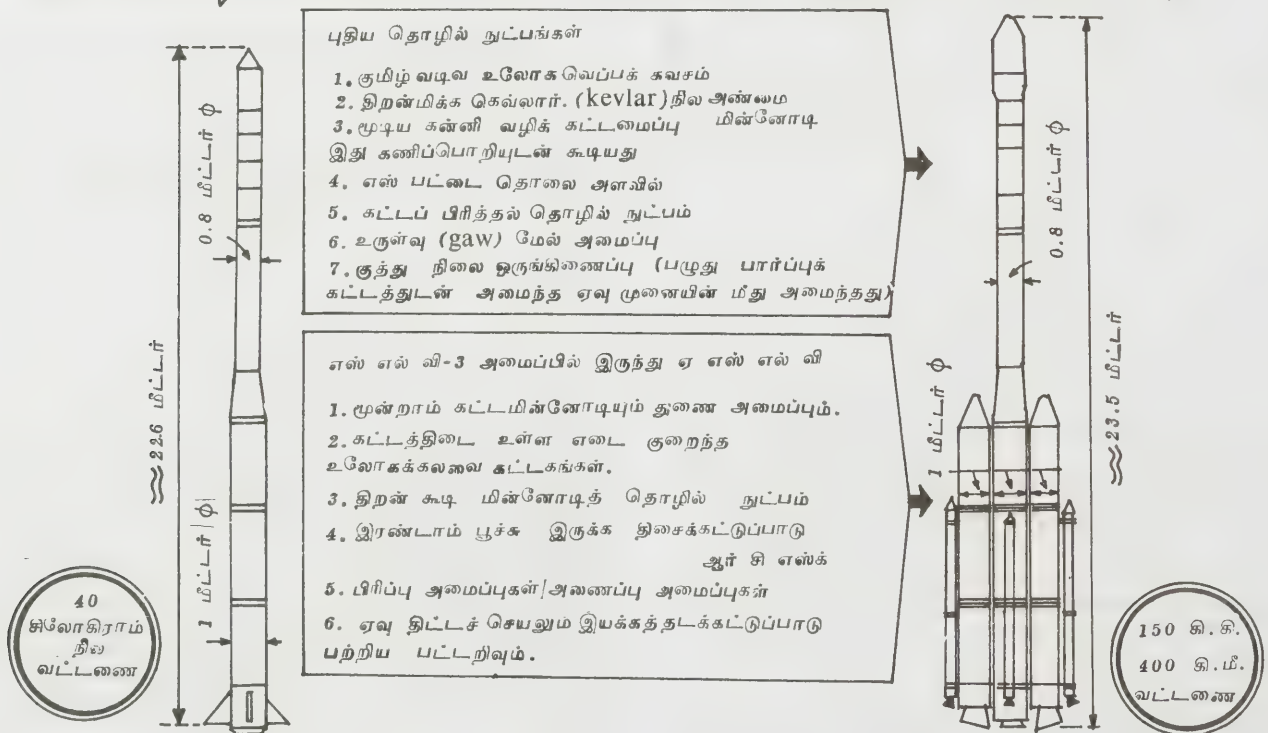 புதிய தொழில் நுட்பங்கள்
1. குமிழ் வடிவ உலோக வெப்பக் கவசம்
2. திறன்மிக்க கெவ்லார். (kevlar) நில அண்மை
3. மூடிய கன்னி வழிக் கட்டமைப்பு மின்னோடி
இது கணிப்பொறியுடன் கூடியது
4. எஸ் பட்டை தொலை அளவில்
5. கட்டப் பிரித்தல் தொழில் நுட்பம்
6. உருள்வு (gaw) மேல் அமைப்பு
7. குத்து நிலை ஒருங்கிணைப்பு (பழுது பார்ப்புக்
கட்டத்துடன் அமைந்த ஏவு முனையின் மீது அமைந்தது)
எஸ் எல் வி-3 அமைப்பில் இருந்து ஏ எஸ் எல் வி
1. மூன்றாம் கட்டமின்னோடியும் துணை அமைப்பும்.
2. கட்டத்திடை உள்ள எடை குறைந்த
உலோகக்கலவை கட்டகங்கள்.
3. திறன் கூடி மின்னோடித் தொழில் நுட்பம்
4. இரண்டாம் பூச்சு இருக்க திசைக்கட்டுப்பாடு
ஆர் சி எஸ்க்
5. பிரிப்பு அமைப்புகள்/அணைப்பு அமைப்புகள்
6. ஏவு திட்டச் செயலும் இயக்கத்தடக்கட்டுப்பாடு
பற்றிய பட்டறிவும்.
0.8 மீட்டர் ϕ
≈22.6 மீட்டர்
1 மீட்டர் ϕ
40
கிலோகிராம்
நில
வட்டணை
0.8 மீட்டர் ϕ
1 மீட்டர் ϕ
≈23.5 மீட்டர்
150 கி.கி.
400 கி.மீ.
வட்டணை